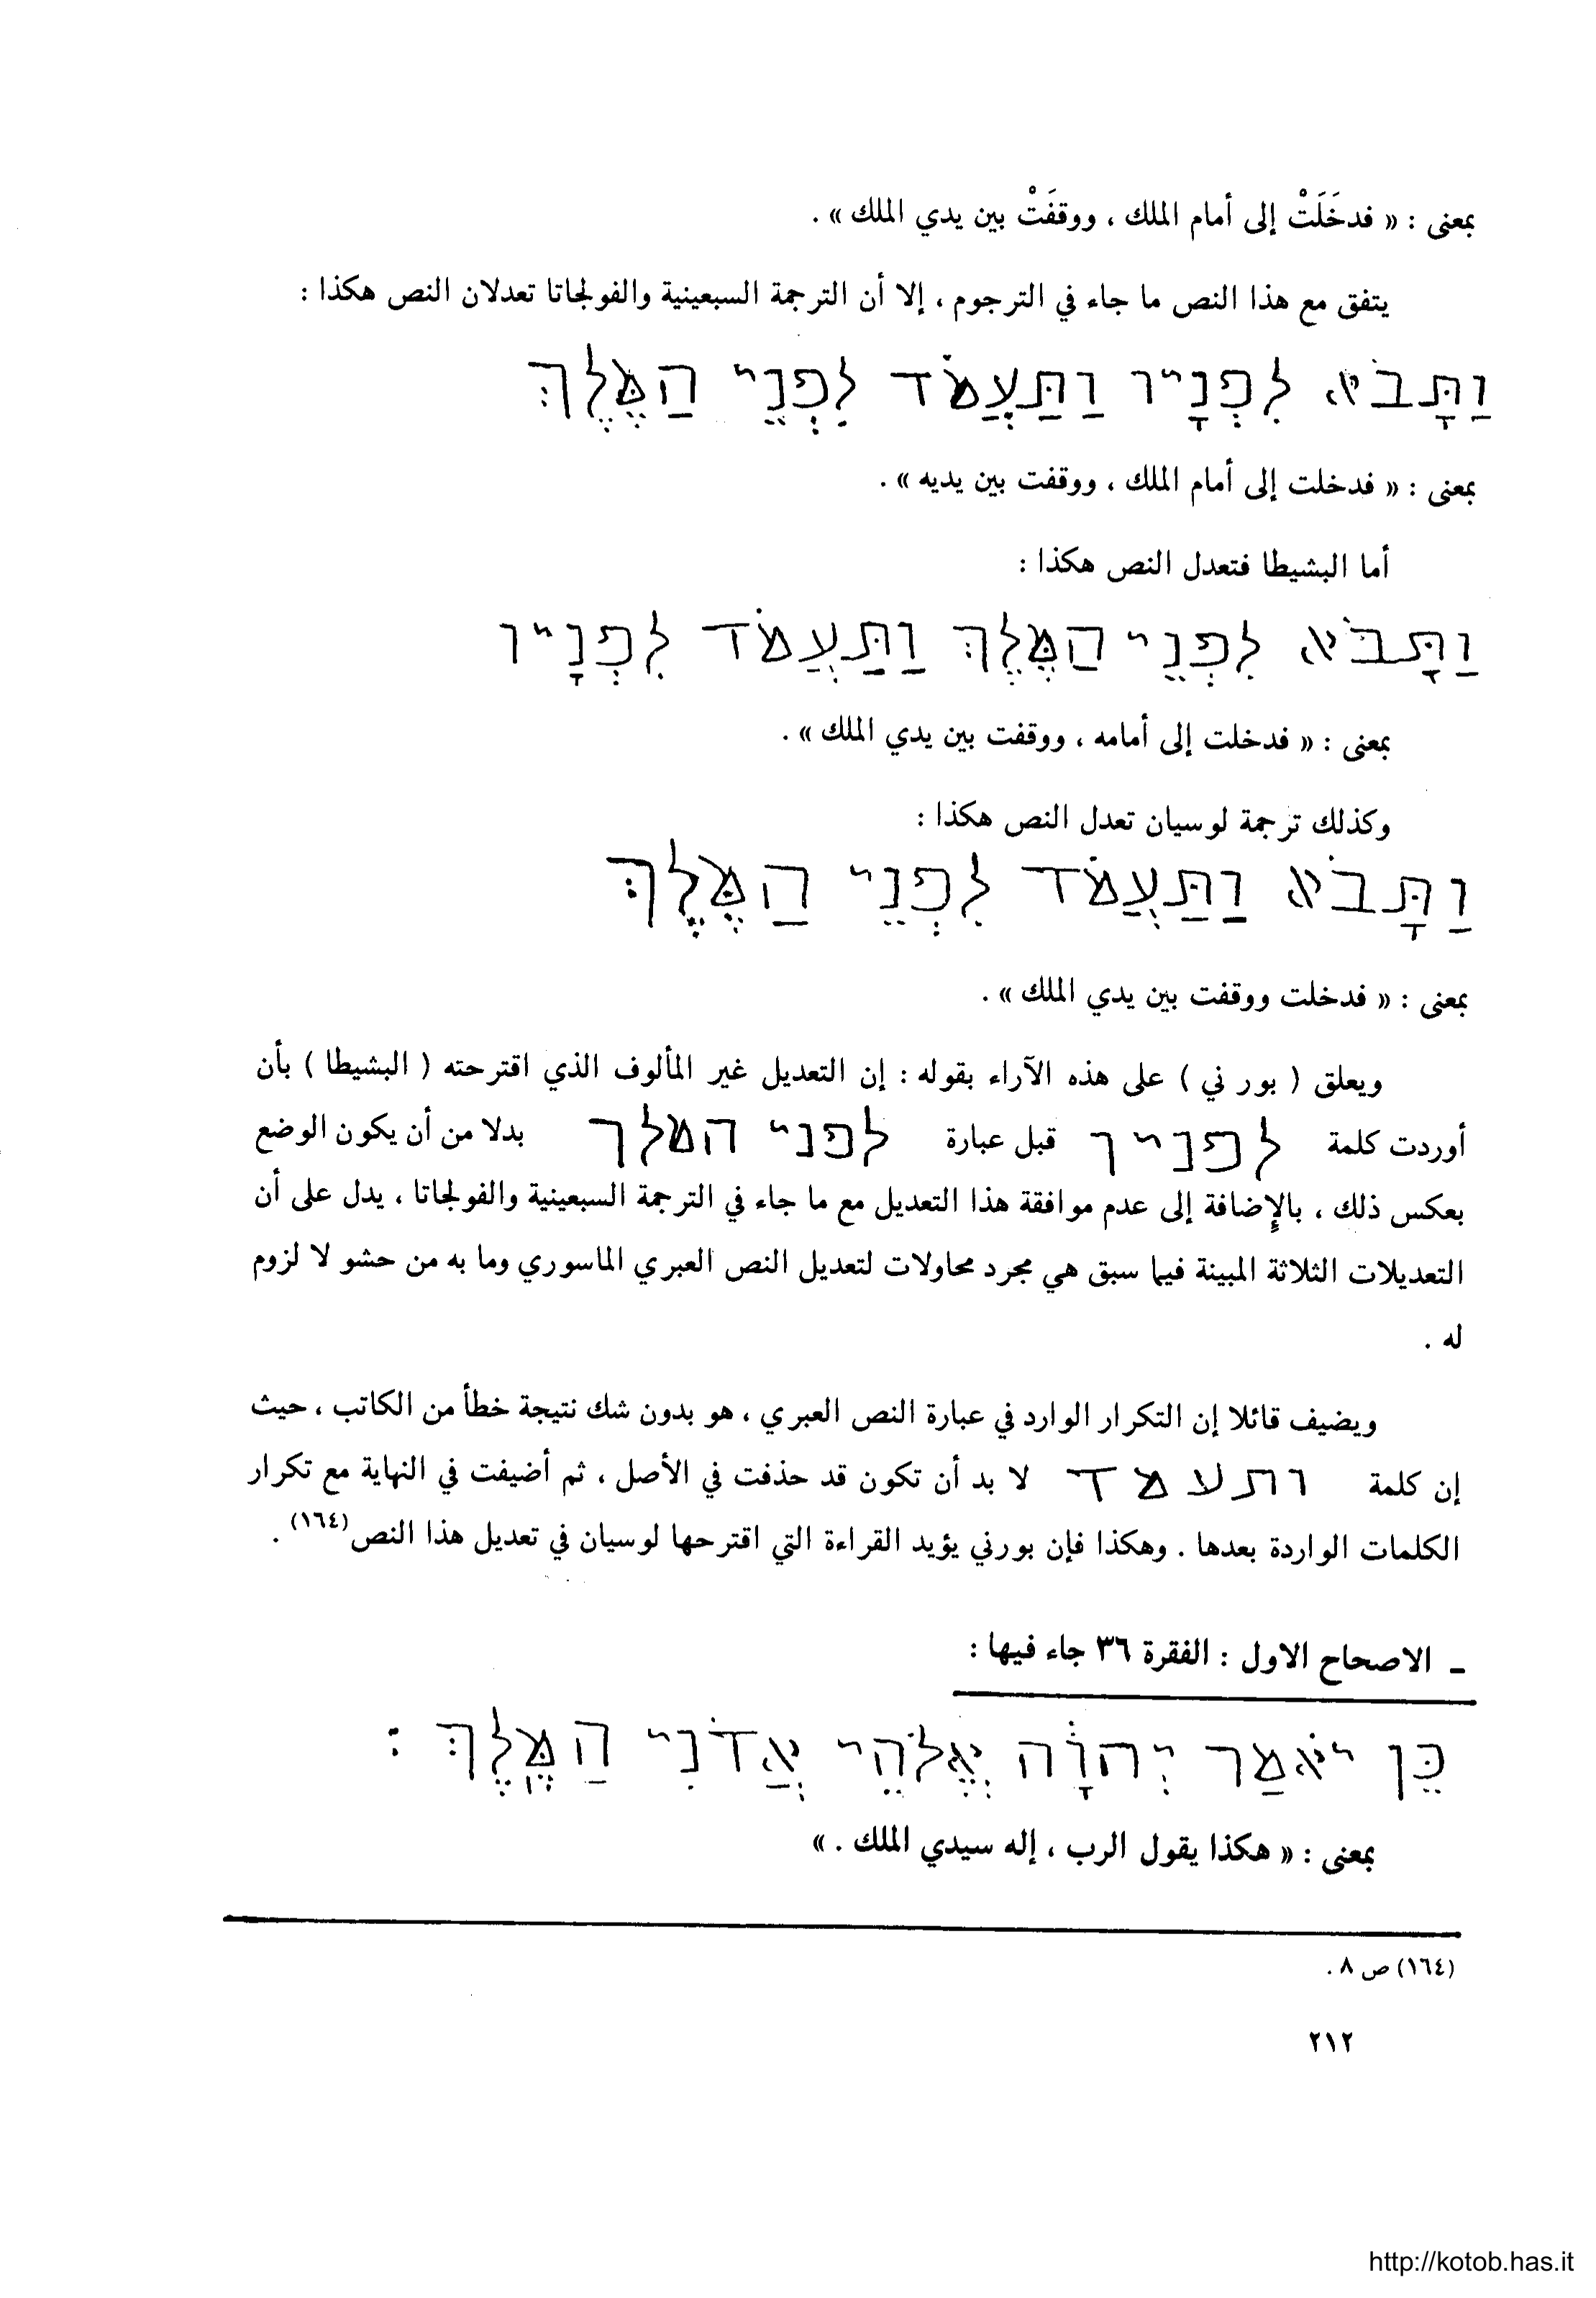 بمعنى : « فدخَلَتْ إلى أمام الملك ، ووقفَتْ بين يدي الملك » .
يتفق مع هذا النص ما جاء في الترجوم ، إلا أن الترجمة السبعينية والفولجاتا تعدلان النص هكذا :
וַתָּבֹא לִפְנָיו וַתַּעֲמֹד לִפְנֵי הַמֶּלֶךְ
بمعنى : « فدخلت إلى أمام الملك ، ووقفت بين يديه » .
أما البشيطا فتعدل النص هكذا :
וַתָּבֹא לִפְנֵי הַמֶּלֶךְ וַתַּעֲמֹד לִפְנָיו
بمعنى : « فدخلت إلى أمامه ، ووقفت بين يدي الملك » .
وكذلك ترجمة لوسيان تعدل النص هكذا :
וַתָּבֹא וַתַּעֲמֹד לִפְנֵי הַמֶּלֶךְ
بمعنى : « فدخلت ووقفت بين يدي الملك » .
ويعلق ( بور ني ) على هذه الآراء بقوله : إن التعديل غير المألوف الذي اقترحته ( البشيطا ) بأن
أوردت كلمة לפניו قبل عبارة לפני המלך بدلا من أن يكون الوضع
بعكس ذلك ، بالإضافة إلى عدم موافقة هذا التعديل مع ما جاء في الترجمة السبعينية والفولجاتا ، يدل على أن
التعديلات الثلاثة المبينة فيما سبق هي مجرد محاولات لتعديل النص العبري الماسوري وما به من حشو لا لزوم
له .
ويضيف قائلا إن التكرار الوارد في عبارة النص العبري ، هو بدون شك نتيجة خطأ من الكاتب ، حيث
إن كلمة ותעמד لا بد أن تكون قد حذفت في الأصل ، ثم أضيفت في النهاية مع تكرار
الكلمات الواردة بعدها . وهكذا فإن بورني يؤيد القراءة التي اقترحها لوسيان في تعديل هذا النص (١٦٤) .
ـ الاصحاح الاول : الفقرة ٣٦ جاء فيها :
כֵּן יֹאמַר יְהוָֹה אֱלֹהֵי אֲדֹנִי הַמֶּלֶךְ :
بمعنى : « هكذا يقول الرب ، إله سيدي الملك . »
(١٦٤) ص ٨ .
٢١٢
http://kotob.has.it